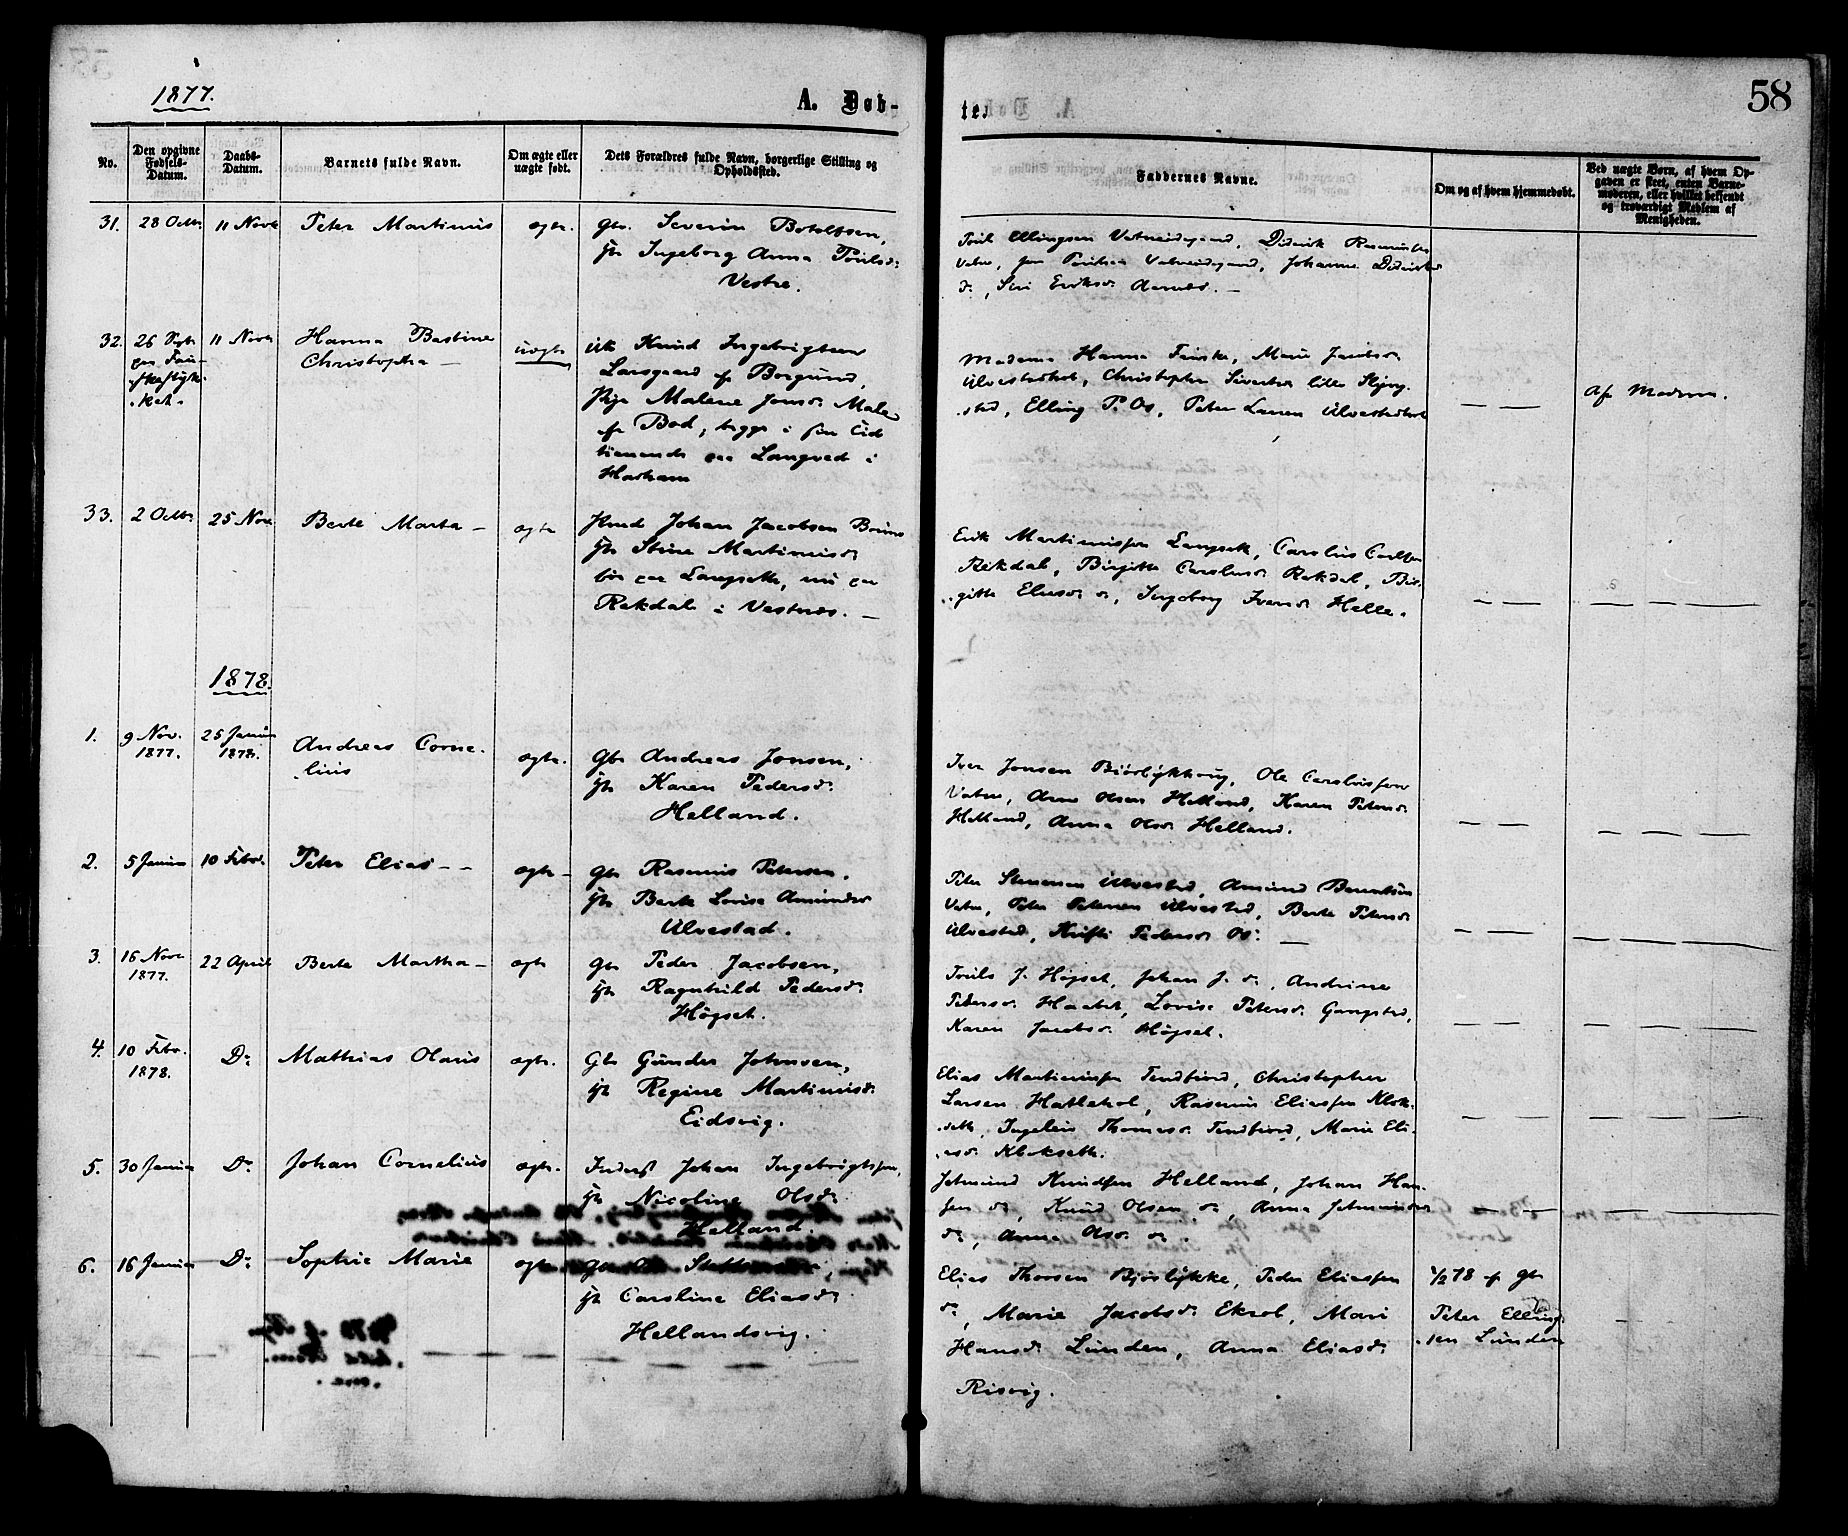 58
1877.
A. Døb-
te.
No.
Den opgivne
Fødsels-
Datum.
Daabs-
Datum.
Barnets fulde Navn.
Om ægte eller
uægte født.
Dets Forældres fulde Navn, borgerlige Stilling og
Opholdssted.
Faddernes Navne.
Om og af hvem hjemmedøbt.
Ved uægte Børn, af hvem Op-
gaven er skeet, enten Barne-
moderen, eller hvilket bekjendt
og troværdigt Medlem af
Menigheden.
31.
28 Octbr
11 Novbr
Peter Martinus
ægte.
Gbr. Severin Botolfsen,
Ingeborg Anna Poulsdr
Vestre.
Ellingsen Vatneidegaard, Diderik Rasmussen
Vatne, Vatneidegaard, Johanne
dr, Siri Eriksdr Aarnæs. —
32.
26 Septr
11 Novbr
Hanna Bastine
Christopha —
uægte
Knud Ingebrigtsen
Langaard af Borgund,
Pige Malene Jonsdr Male
af Bod, begge i sin Tid
tienende paa Longva i
Harham
Madame Hanna Finske, Marie Jacobsdr
Ulvestadhol, Christopher Sivertsen lille
sted, Elling P. Os, Peter Larsen Ulvestadhol
— —
Af Modren.
33.
2 Octbr
25 Nov
Berte Marta —
ægte
Johan Jacobsen
Stine Martinusdr
før paa Langseth, nu paa
Rekdal i Vestnæs. —
Erik Martinussen Langseth, Carolus Carlsen
Rekdal, Birgitte Carolusdr Rekdal, Bir-
gitte Eliasdr dr, Ingeborg Iversdr Helle.
— —
— — —
1878.
1.
9 Nov.
1877.
25 Januar
1878.
Andreas Corne-
lius
ægte.
Gbr Andreas Jonsen,
Karen Pedersdr
Helland.
Iver Jonsen Biørlykhoug, Ole Carolussen
Vatne, Arne Olsen Helland, Karen Petersdr
Helland, Anna Olsdr Helland.
— —
— — —
2.
5 Januar
10 Febr.
Peter Elias - -
ægte —
Gbr Rasmus Petersen,
Berte Lovise Amundsdr
Ulvestad.
Peter Steenersen Ulvestad, Amund Berentsen
Vatne, Peter Petersen Ulvestad, Berte Petersdr
Ulvestad, Kristi Pedersdr Os. —
— —
— — —
3.
16 Novbr
1877.
22 April
Berte Martha —
ægte
Gbr Peder Jacobsen,
Ragnhild Pedersdr
Høgset.
Trols J. Høgset, Johan J. dr, Andrine
Petersdr Lovise Petersdr Gangstad,
Karen Jacobsdr Høgset.
— —
— — —
4.
10 Febr.
1878.
Do
Mathias Olaus
ægte.
Gbr Gunder Johnsen,
Regine Martinusdr
Eidsvig.
Elias Martinussen Tendfiord, Christopher
Larsen Hatlehol, Rasmus Eliassen Klok-
seth, Ingeleiv Thomasdr Tendfiord, Marie Eli-
asdr Klokseth.
— —
— — —
5.
30 Januar
Do
Johan Cornelius
ægte.
Inderst Johan Ingebrigtsen,
Nicoline Olsdr
Helland.
Jetmund Knudsen Helland, Johan Han-
sen do, Knud Olsen do, Anna Jetmundsdr
do, Anna Olsdr do.
— —
— — —
6.
16 Januar
Do
Sophie Marie
ægte
Caroline Eliasdr
Hellandsvig.
Elias Thorsen Bjørlykke, Peder Eliassen
do, Marie Jacobsdr Ekrol, Mari
Hansdr Lunden, Anna Eliasdr
Risvig.
1/2 78 af Gbr
Peter Elling-
sen Lunden
— —